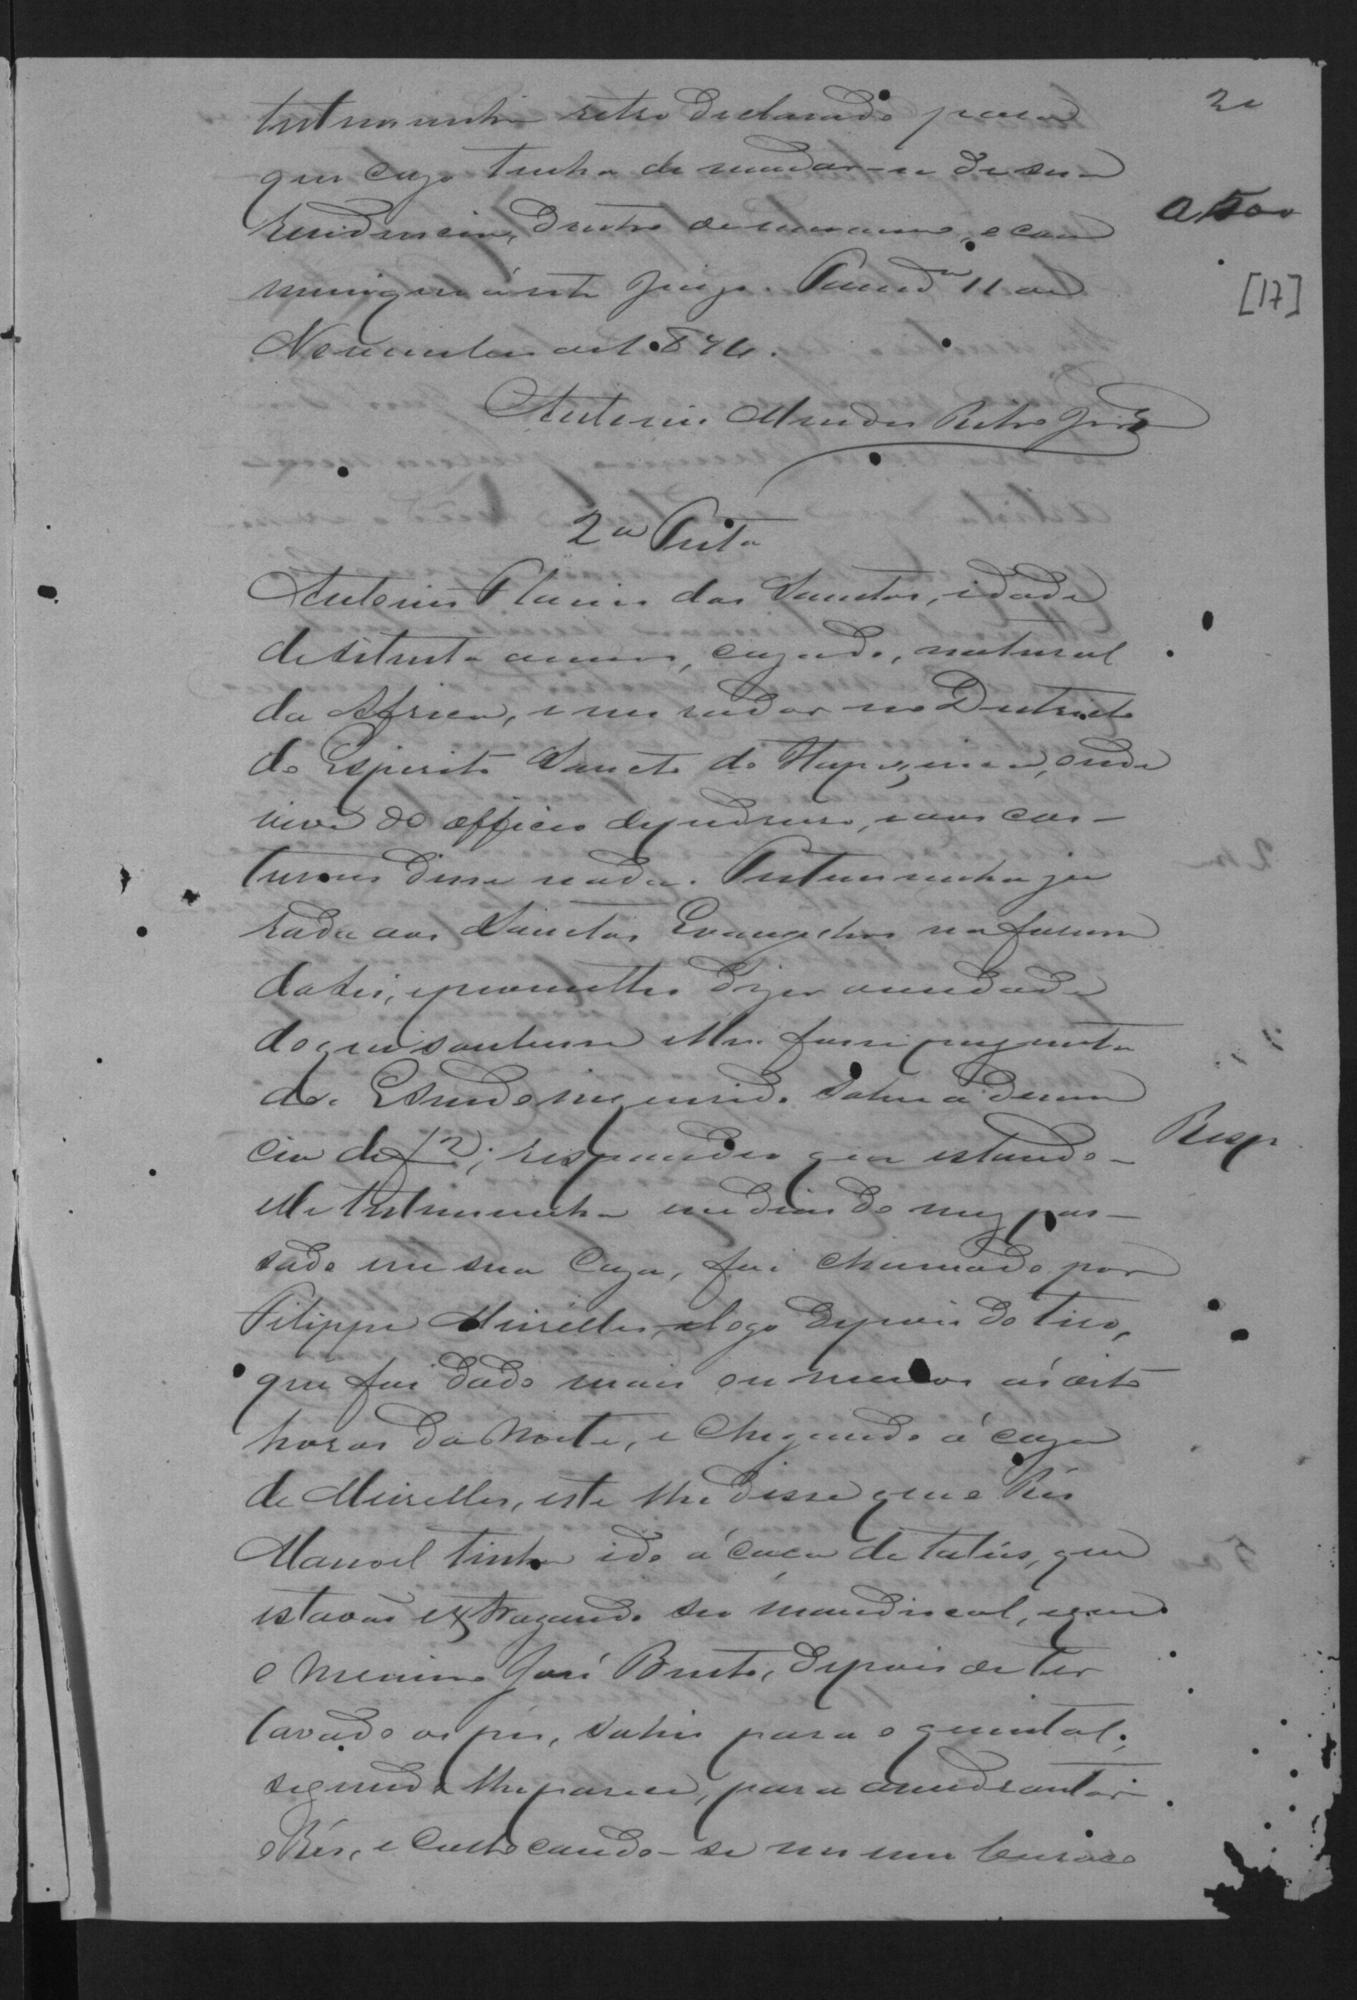 21
testemunha retro declarado para
que caso tenha de mudar-se de sua
residencia, dentro de um anno, o com
munique á este Juizo.
11 de
Novembro de 1874.
a 500
[17]
Antonio Mendes
2a Testa
Antonio dos Sanctos, idade
de setenta annos, cazado, natural
da Africa, e morador no Districto
do Espirito Sancto de onde
vive do officio de pedreiro, e aos cos-
tumes disse nada. Testemunha ju
rada aos Sanctos Evangelhos na forma
da lei, e prometteo dizer a verdade
do que soubesse e lhe fosse pergunta
do. E sendo inquirido sobre a denun
cia de f 2, respondeo que estando
Resp.
elle testemunha em dias do mez pas-
sado em sua caza, foi chamado por
Filippe Meirelles, logo depois do tiro,
que foi dado mais ou menos ás oito
horas da noite, e chegando á caza
de Meirelles, este lhe disse que o Réo
Manoel tinha ido á caça de tatús, que
estavão estragando seo mandiocal, e que
o menino José Bento, depois de ter
lavado os pés, sahio para o quintal,
segundo lhe parece, para amedrontar
o Réo, e collocando-se em um buraco